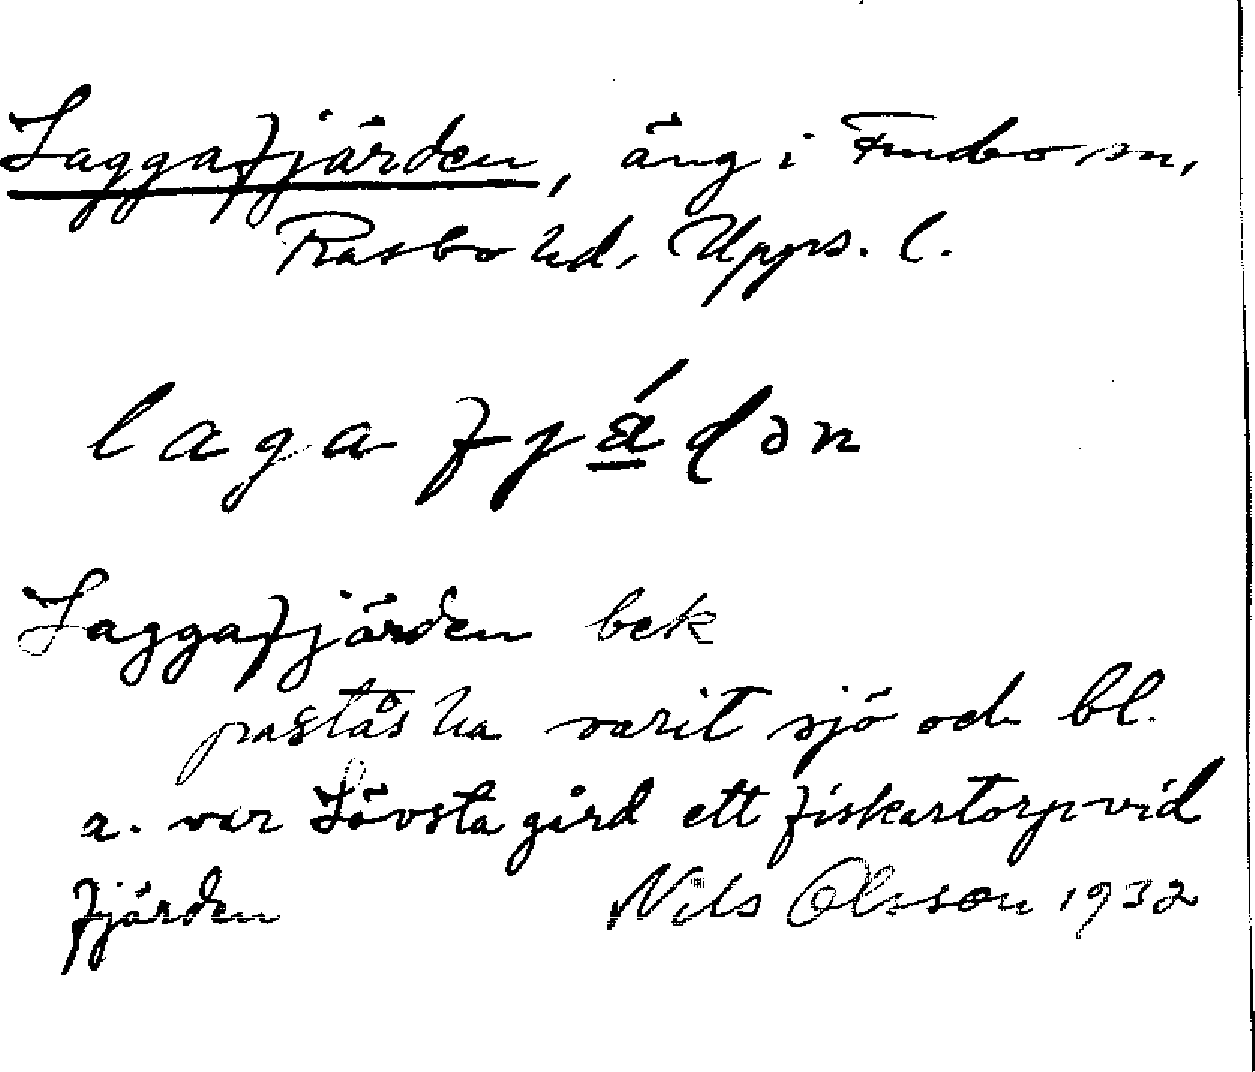 Laggafjärden, äng i Funbo sn,
Rasbo hd, Upps. l.
lagafjä́dən
Laggafjärden bek
påstås ha varit sjö och bl.
a. var Lövsta gård ett fiskartorp vid
fjärden Nils Olsson 1932